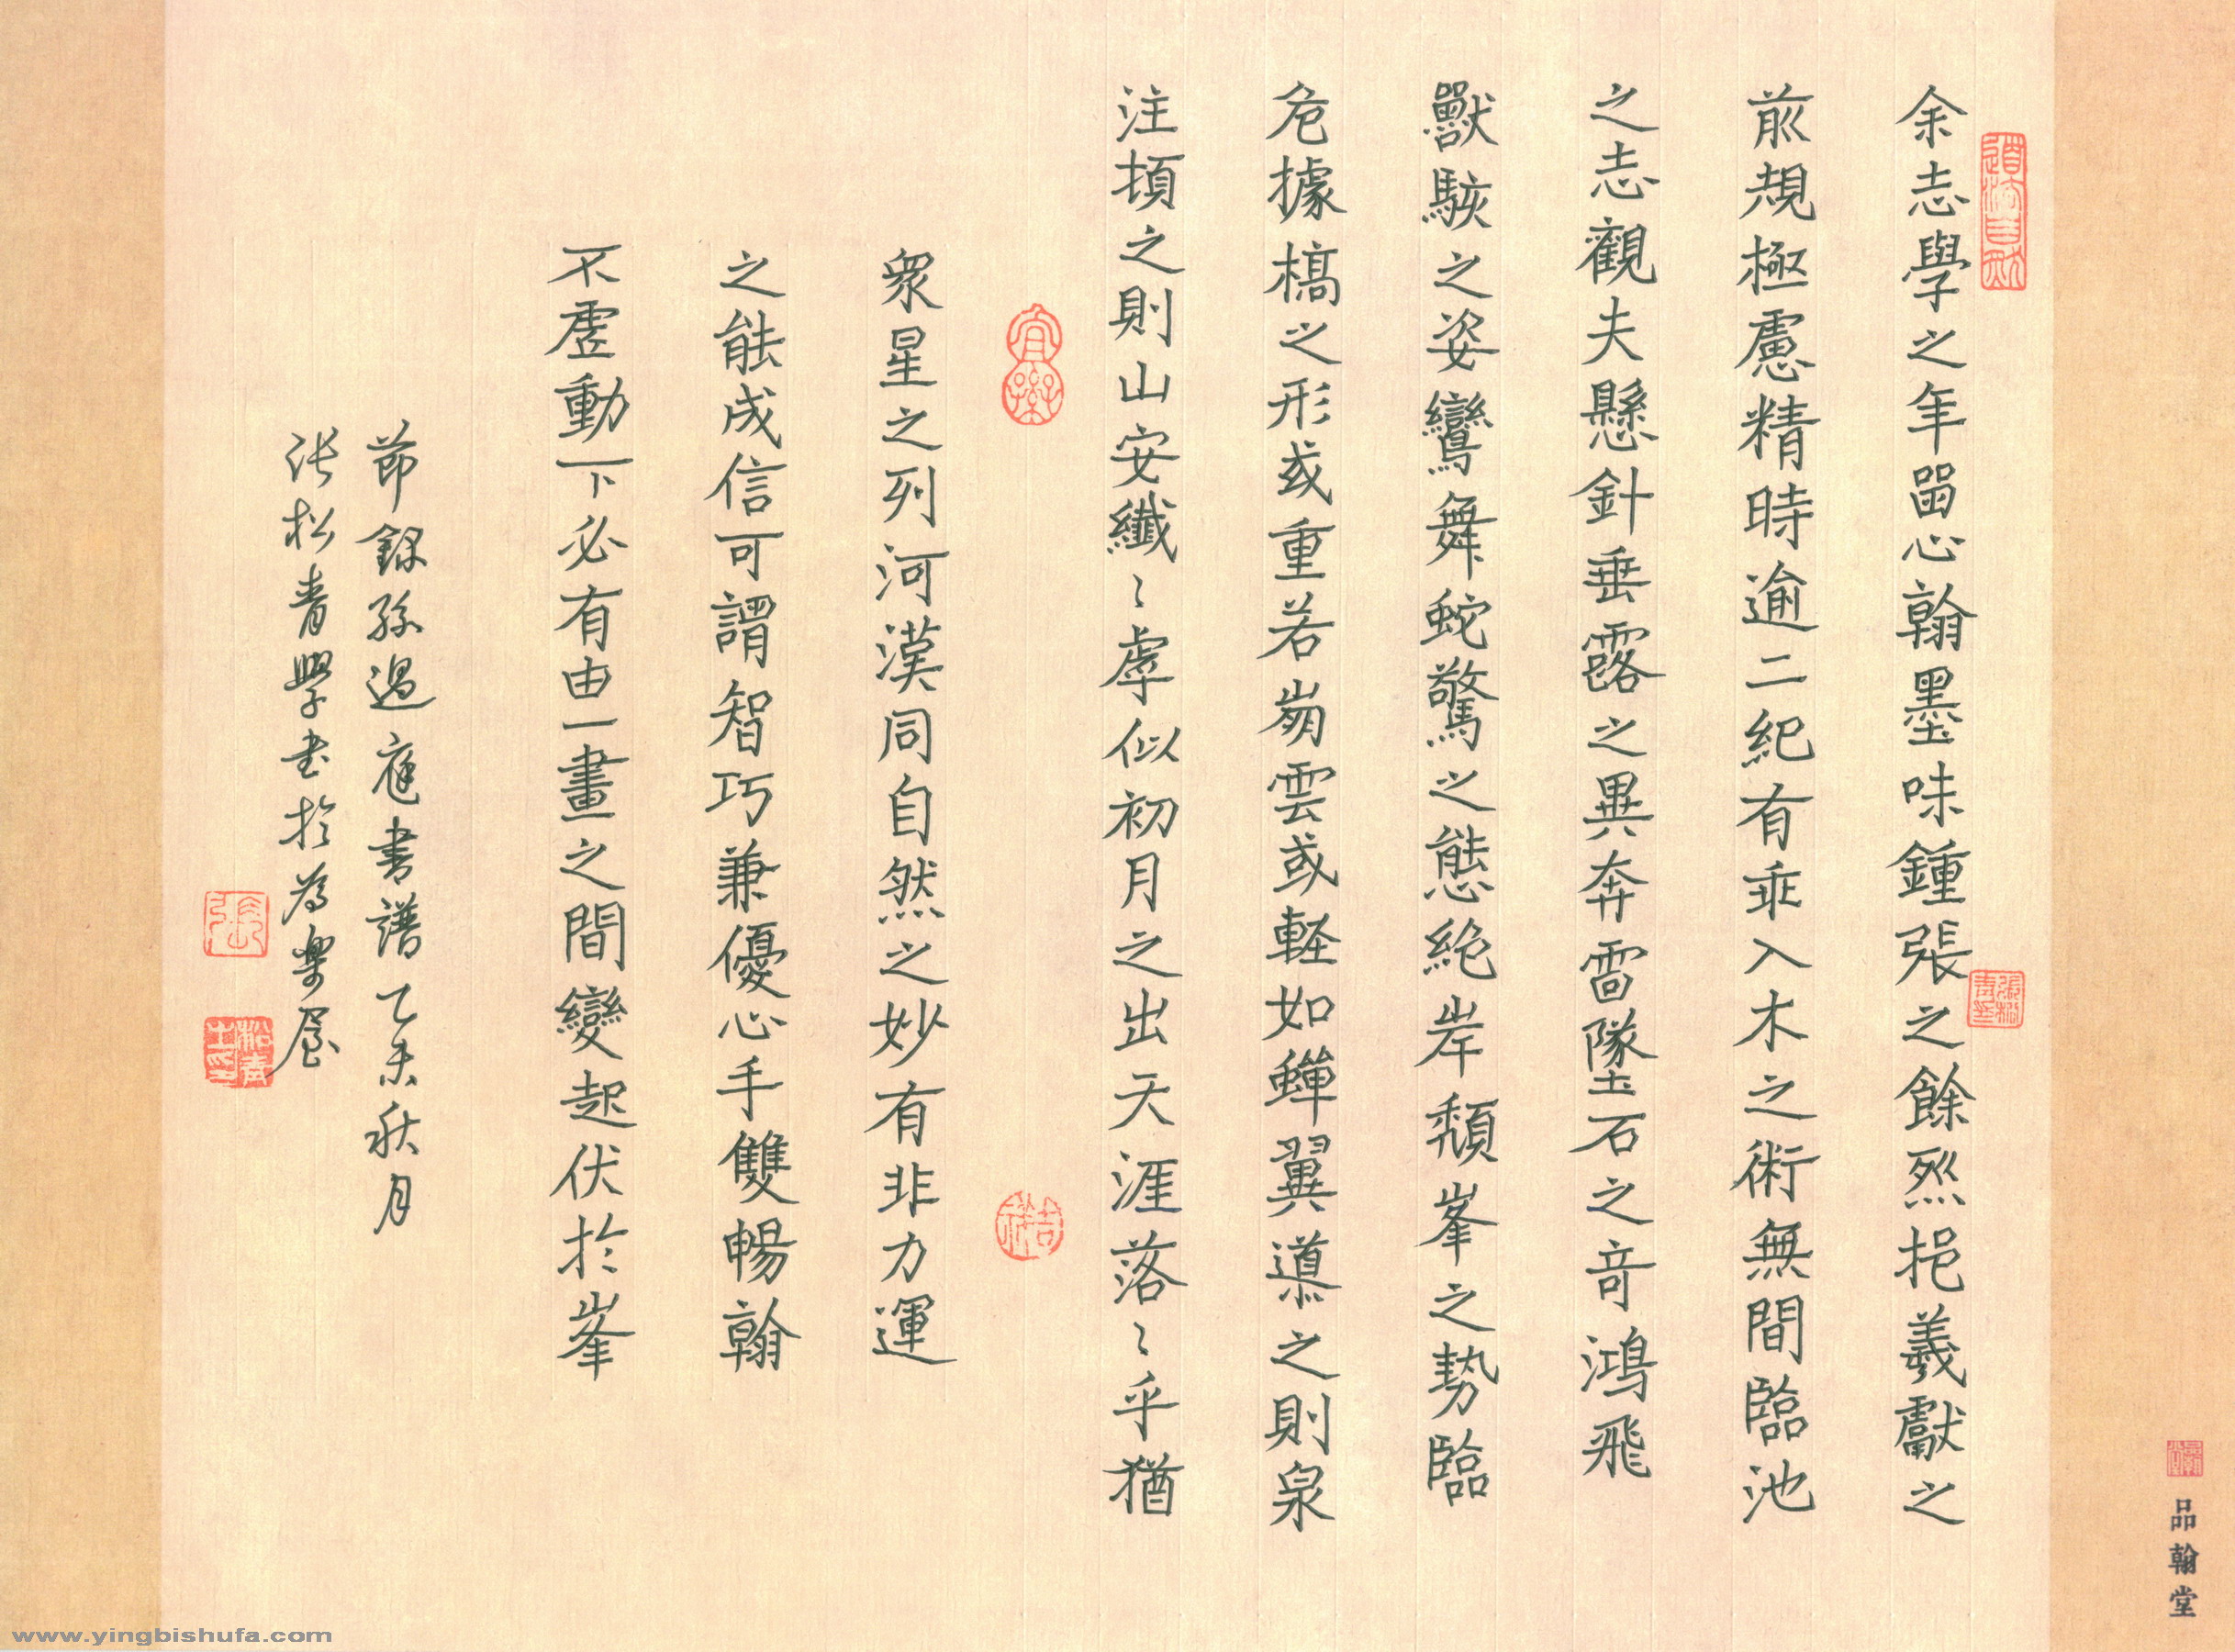 道法自然
余志學之年留心翰墨味鍾張之餘烈挹羲獻之
前規極慮精時逾二紀有乖入木之術無間臨池
之志觀夫懸針垂露之異奔雷墜石之奇鴻飛
獸駭之姿鸞舞蛇驚之態絕岸頹峯之勢臨
危據槁之形或重若崩雲或輕如蟬翼導之則泉
注頓之則山安纖〻虖似初月之出天涯落〻乎猶
眾星之列河漢同自然之妙有非力運
之能成信可謂智巧兼優心手雙暢翰
不虛動下必有由一畫之間變起伏於峯
節錄孫過庭書譜乙未秋月
張松青學書於為樂居
張
吉祥
品翰堂
www.yingbishufa.com